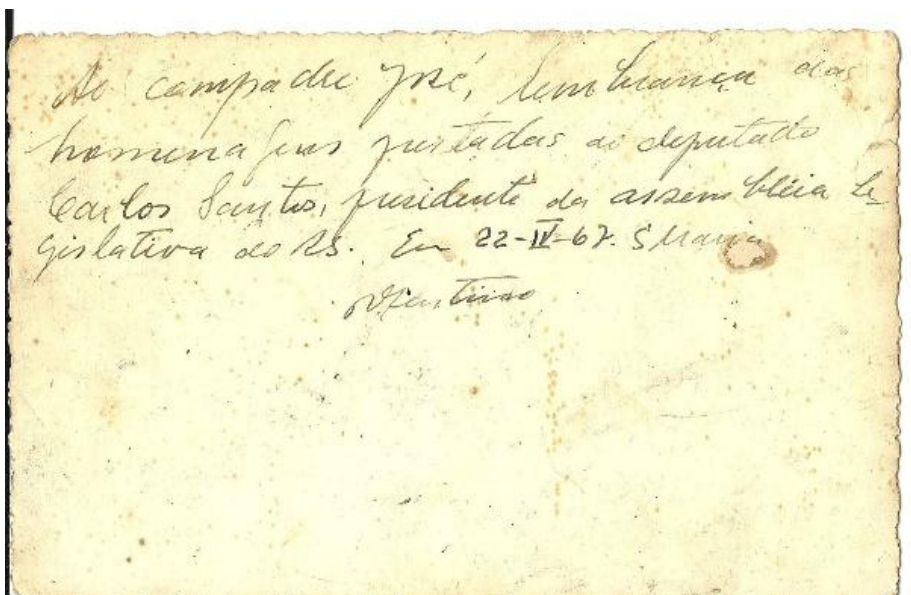 Ao compadre José, lembrança das
homenagens prestadas ao deputado
Carlos Santos, presidente da assembléia le
gislativa do RS. Em 22-IV-67. S Maria